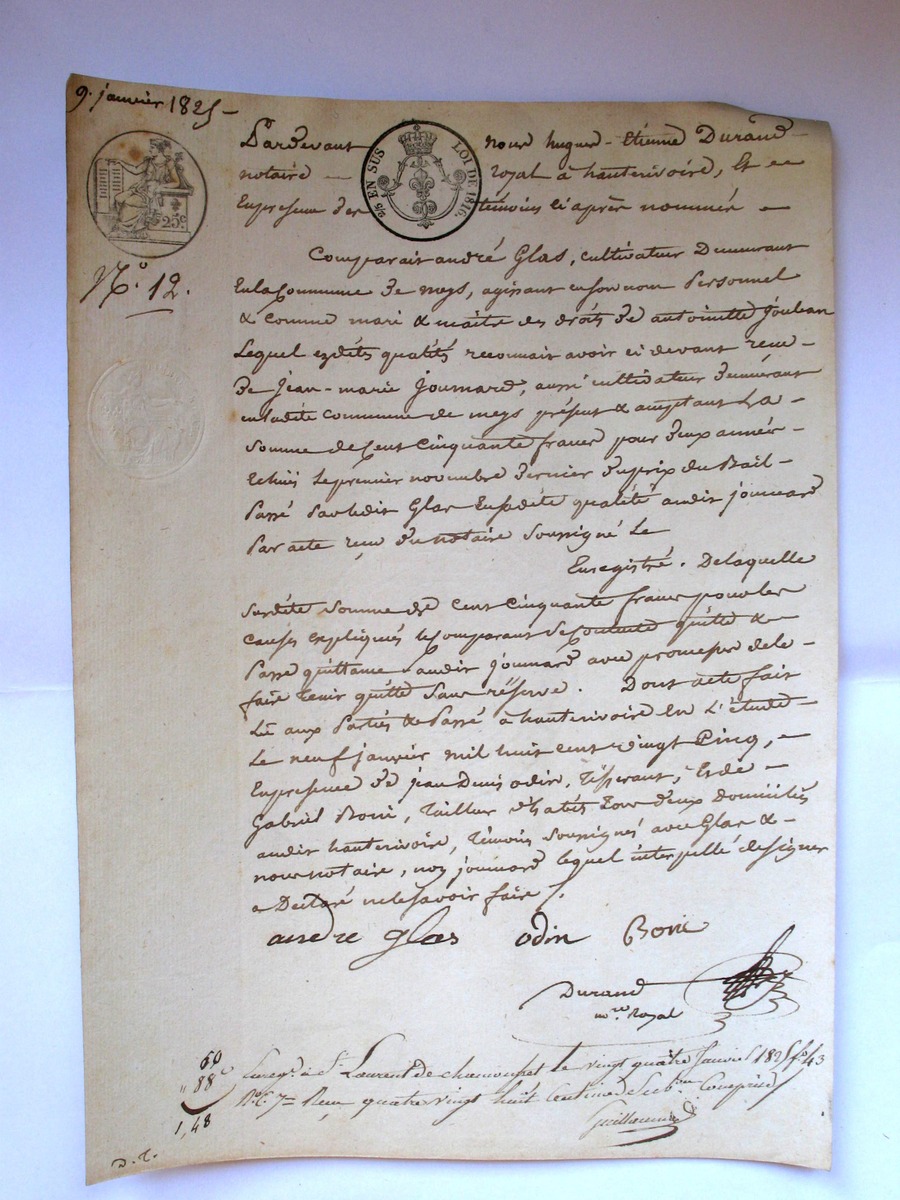 9. janvier 1825 -
Pardevant nous hugues - Etienne Durand -
notaire - royal à hauterivoire, Et en
En presence des témoins ci après nommés -
2/5 EN SUS LOI DE 1816.
25c
No. 12.
Comparait andré Glas, cultivateur Demeurant
En la Commune de meys, agissant en son nom Personnel
& comme mari & maitre des droits de antoinette
Lequel esdites qualités reconnait avoir ci devant recu -
de Jean - marie joumard, aussi cultivateur demeurant
en ladite commune de meys présent & acceptant La -
Somme de Cent Cinquante francs pour deux années -
Echues Le premier novembre dernier du prix du Bail -
Passé Par ledit Glas En sadite qualité audit joumard
Par acte reçu du notaire Soussigné Le
Enregistré. De laquelle
Susdite Somme de cent cinquante francs pour les
causes expliqués le comparant se contente quitte &
Passe quittance audit joumard avec promesse de le -
faire tenir quitte Sans réserve. Dont acte fait
Lu aux Parties & Passé à hauterivoire En L'étude -
Le neuf janvier mil huit cent vingt Cinq, -
En presence de jean Denis odin, Tisserant, & de -
Gabriel Boric, Tailleur d'habits Tous deux domiciliés
audit hauterivoire, Témoins Soussignés avec Glas & -
nous notaire, non joumard lequel interpellé de signer
a Déclaré ne le savoir faire /.
andre glas odin Boric
Durand
nre Royal
60
" 88c
1,48
Enregé à St Laurent de chamousset le vingt quatre Janvier 1825 fo 43
Ro C. 7 Reçu quatre vingt huit Centimes Subon Comprise
D. T.